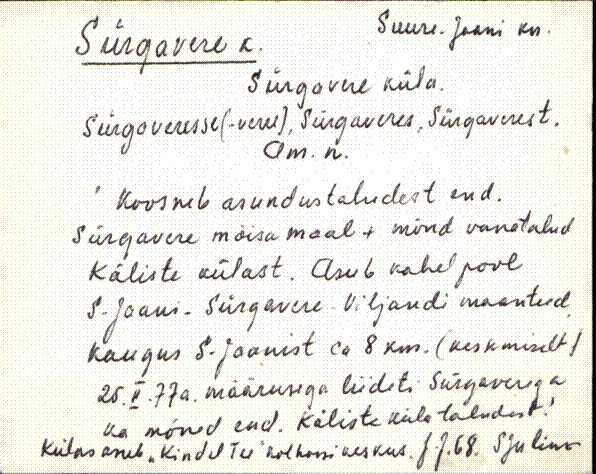 Sürgavere k.
Suure-Jaani kn.
Sürgavere küla.
Sürgaveresse (-vere), Sürgaveres, Sürgaverest.
Am. n.
Koosneb asundustaludest end.
Sürgavere mõisa maal + mõned vanatalud
Käliste külast. Asub kahel pool
S-Jaani-Sürgavere-Viljandi maanteed,
kaugus S-Jaanist ca 8 km. (keskmiselt)
25.II.77a. määrusega liideti Sürgaverega
ka mõned end. Käliste küla taludest!
Külas asub "Kindel Tee" kolhoosi keskus.